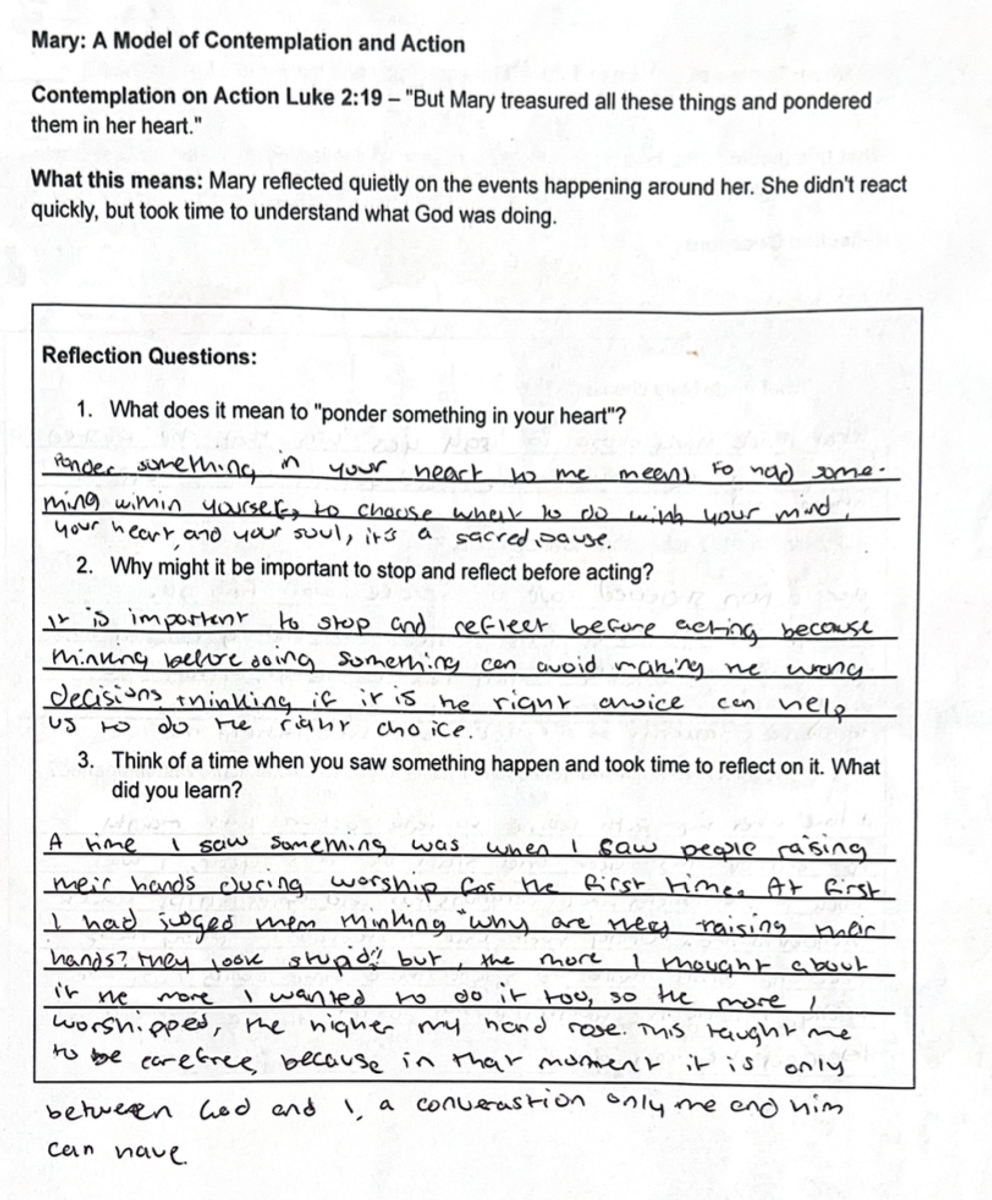 Mary: A Model of Contemplation and Action
Contemplation on Action Luke 2:19 – "But Mary treasured all these things and pondered
them in her heart."
What this means: Mary reflected quietly on the events happening around her. She didn't react
quickly, but took time to understand what God was doing.
Reflection Questions:
1. What does it mean to "ponder something in your heart"?
Ponder something in your heart to me means to hold some-
thing within yourself, to choose what to do with your mind,
your heart, and your soul, it's a sacred pause.
2. Why might it be important to stop and reflect before acting?
It is important to stop and reflect before acting because
thinking before doing something can avoid making the wrong
decisions, thinking if it is the right choice can help
us to do the right choice.
3. Think of a time when you saw something happen and took time to reflect on it. What
did you learn?
A time I saw something was when I saw people raising
their hands during worship for the first time. At first
I had judged them thinking "why are they raising their
hands? they look stupid!" but, the more I thought about
it the more I wanted to do it too, so the more I
worshipped, the higher my hand rose. This taught me
to be carefree, because in that moment it is only
between God and I, a converastion only me and him
can have.